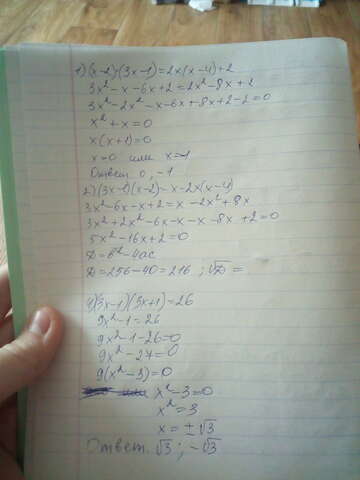 1) (x-2)(3x-1)=2x(x-4)+2
3x²-x-6x+2=2x²-8x+2
3x²-2x²-x-6x+8x+2-2=0
x²+x=0
x(x+1)=0
x=0 или x=-1
Ответ. 0, -1
2) (3x-1)(x-2)=x-2x(x-4)
3x²-6x-x+2=x-2x²+8x
3x²+2x²-6x-x-x-8x+2=0
5x²-16x+2=0
D=b²-4ac
D=256-40=216 ; √D =
4) (3x-1)(3x+1)=26
9x²-1=26
9x²-1-26=0
9x²-27=0
9(x²-3)=0
x²-3=0
x²=3
x=±√3
Ответ. √3 ; -√3